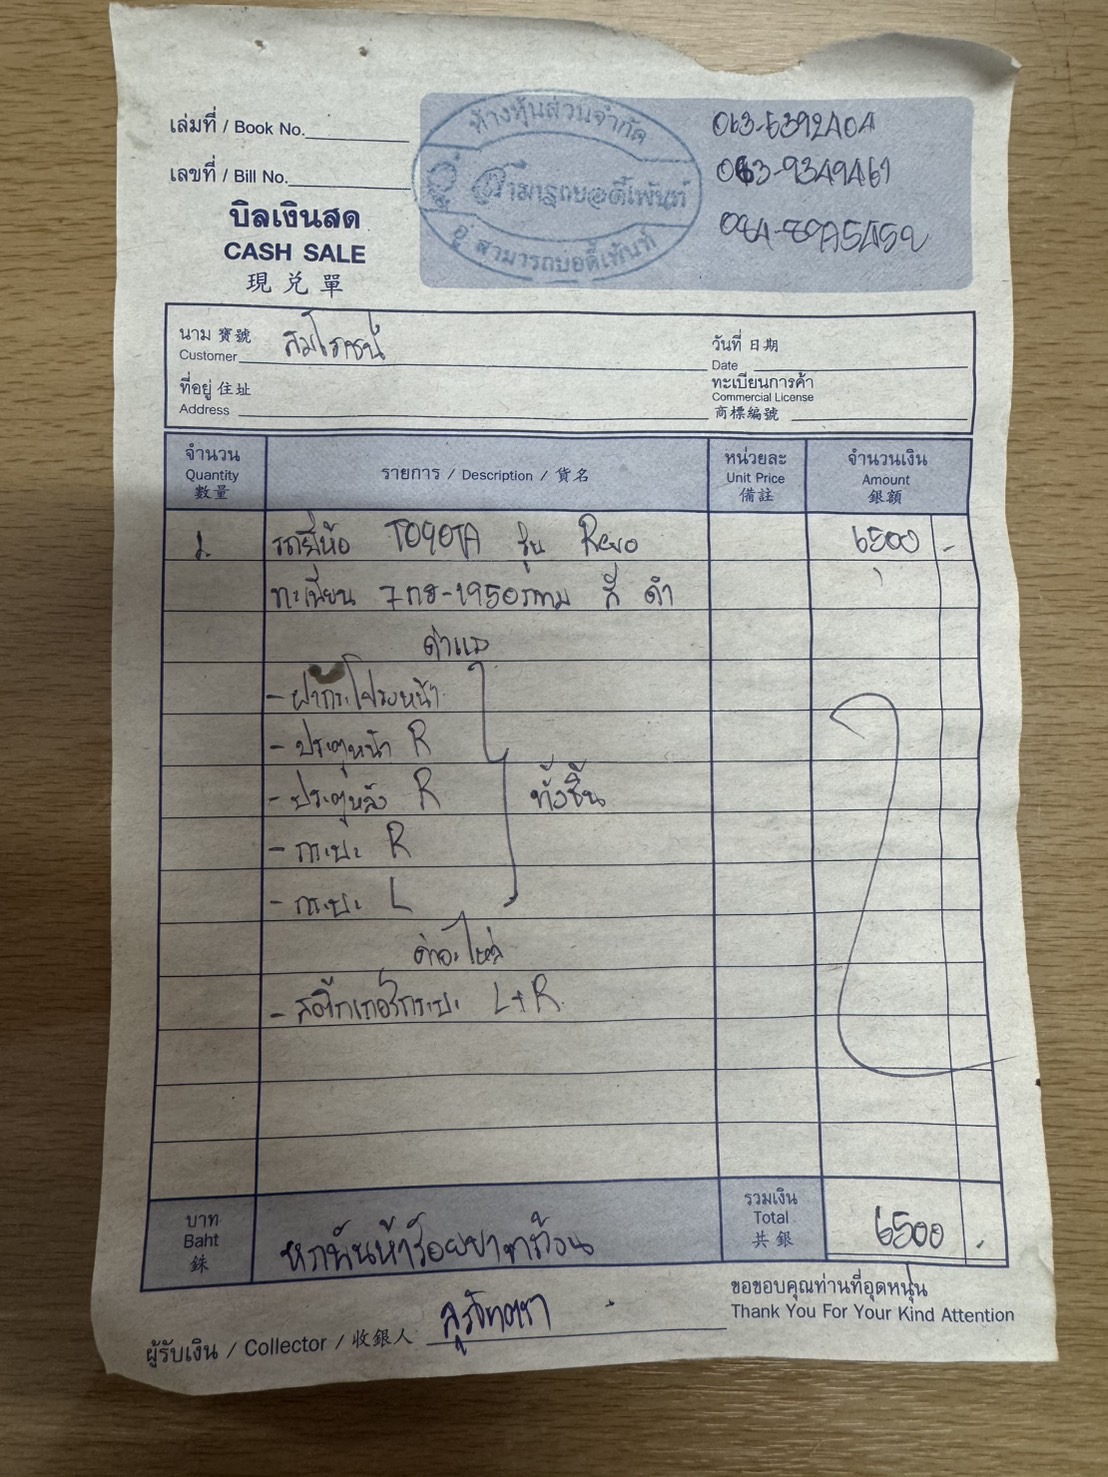 เล่มที่ / Book No.
เลขที่ / Bill No.
บิลเงินสด
CASH SALE
現兌單
ห้างหุ้นส่วนจำกัด
อู่ สามารถบอดี้เพ้นท์
อู่ สามารถบอดี้เพ้นท์
063-6392404
063-9349461
นาม 寶號
Customer
วันที่ 日期
Date
ที่อยู่ 住址
Address
ทะเบียนการค้า
Commercial License
商標編號
จำนวน
Quantity
數量
รายการ / Description / 貨名
หน่วยละ
Unit Price
備註
จำนวนเงิน
Amount
銀額
1. รถยี่ห้อ TOYOTA รุ่น Revo 6500 -
ทะเบียน 7กธ-1950กทม สี ดำ
ค่าแรง
- ฝากระโปรงหน้า
- ประตูหน้า R
- ประตูหลัง R ทั้งชิ้น
- กระบะ R
- กระบะ L
ค่าอะไหล่
- สติ๊กเกอร์กระบะ L+R
บาท
Baht
銖
หกพันห้าร้อยบาทถ้วน
รวมเงิน
Total
共銀
6500 -
ผู้รับเงิน / Collector / 收銀人
ขอขอบคุณท่านที่อุดหนุน
Thank You For Your Kind Attention